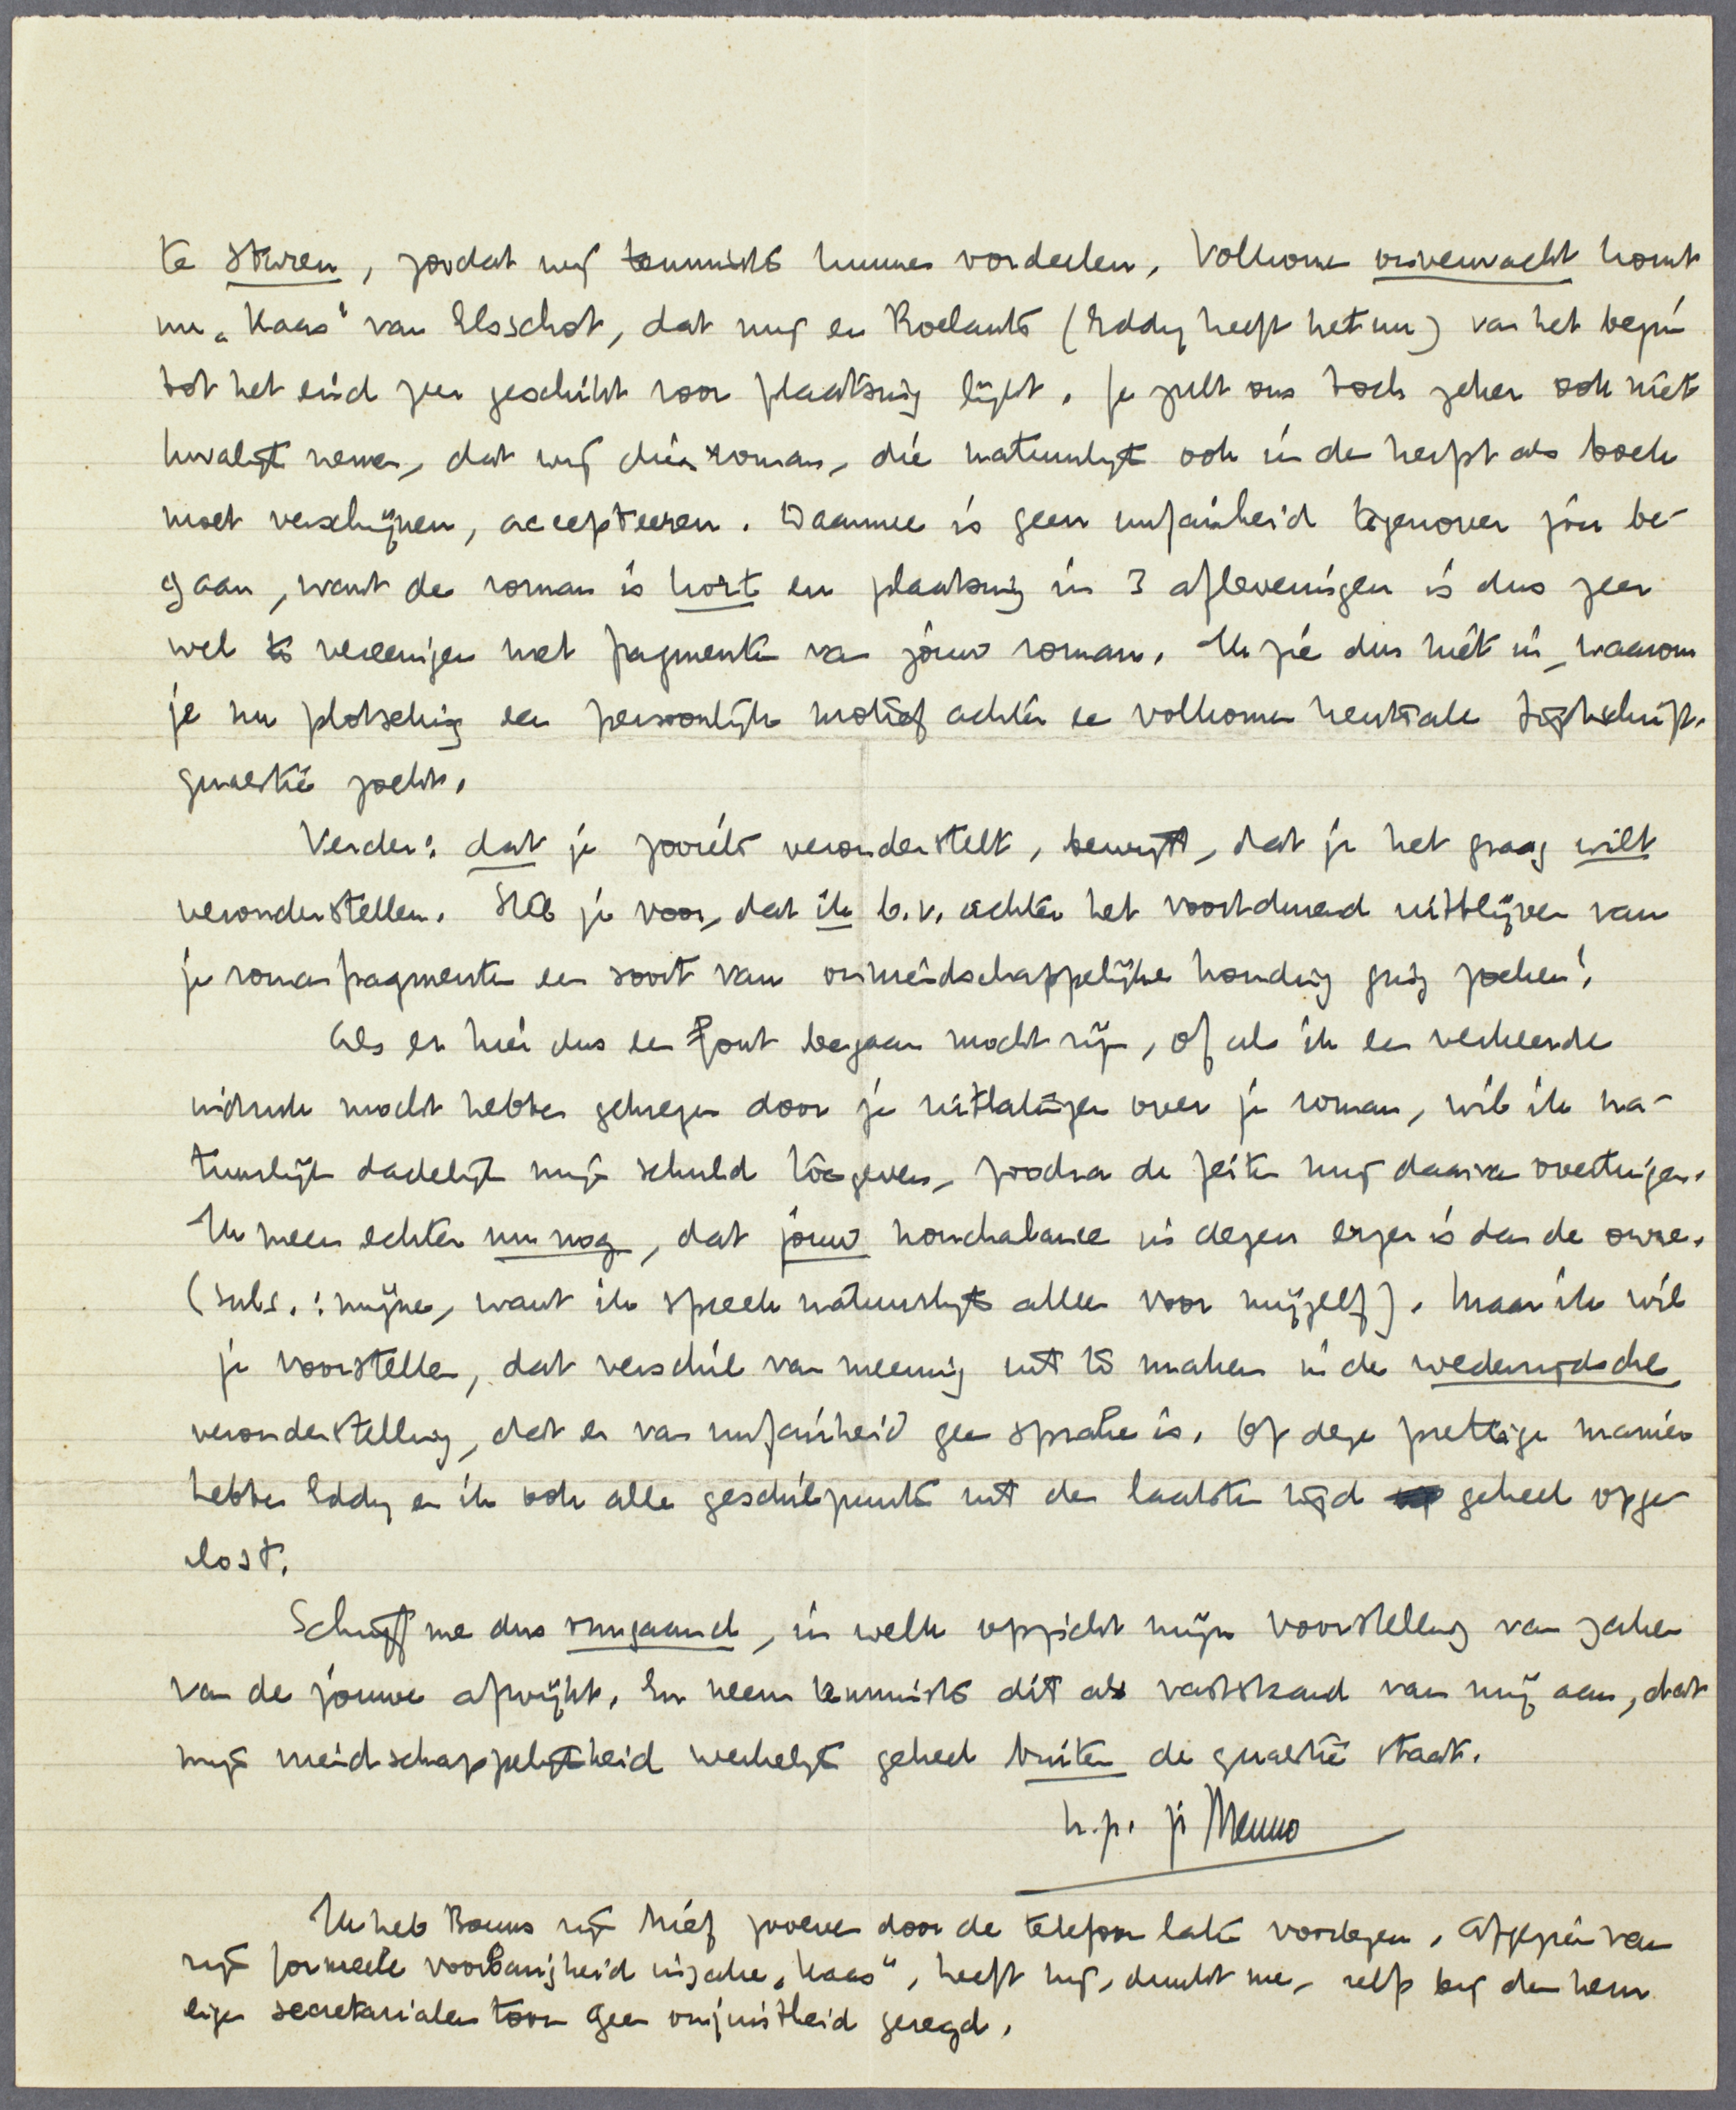 te sturen, zoodat wij tenminste kunnen oordeelen. Volkomen onverwacht komt
nu „Kaas" van Elsschot, dat mij en Roelants (Eddy heeft het nu) van het begin
tot het eind zeer geschikt voor plaatsing lijkt. Je zult ons toch zeker ook niet
kwalijk nemen, dat wij dien roman, die natuurlijk ook in den herfst als boek
moet verschijnen, accepteeren. Daarmee is geen unfairheid tegenover jóu be-
gaan, want de roman is kort en plaatsing in 3 afleveringen is dus zeer
wel te vereenigen met fragmenten van jóuw roman. Ik zie dus niet in, waarom
je nu plotseling een persoonlijk motief achter een volkomen neutrale tijdschrift-
quaestie zoekt.
Verder: dat je zooiets veronderstelt, bewijst, dat je het graag wilt
veronderstellen. Stel je voor, dat ik b.v. achter het voortdurend uitblijven van
je romanfragmenten een soort van onvriendschappelijke houding ging zoeken!
Als er hier dus een fout begaan mocht zijn, of als ik een verkeerde
indruk mocht hebben gekregen door je uitlatingen over je roman, wil ik na-
tuurlijk dadelijk mijn schuld toegeven, zoodra de feiten mij daarvan overtuigen.
Ik meen echter nu nog, dat jouw nonchalance in dezen erger is dan de onze.
(subs.: mijne, want ik spreek natuurlijk alleen voor mijzelf). Maar ik wil
je voorstellen, dat verschil van meening uit te maken in de wederzijdsche
veronderstelling, dat er van unfairheid geen sprake is. Op deze prettige manier
hebben Eddy en ik ook alle geschilpunten uit den laatsten tijd geheel opge-
lost.
Schrijf me dus omgaand, in welk opzicht mijn voorstelling van zaken
van de jouwe afwijkt. En neem tenminste dit als vaststaand van mij aan, dat
mijn vriendschappelijkheid werkelijk geheel buiten de quaestie staat.
h.p. je Menno
Ik heb Bouws zijn brief zooeven door de telefoon laten voorlezen. Afgezien van
zijn formeele voorbarigheid inzake „Kaas", heeft hij, dunkt me, zelfs bij den hem
eigen secretarialen toon geen onjuistheid gezegd.